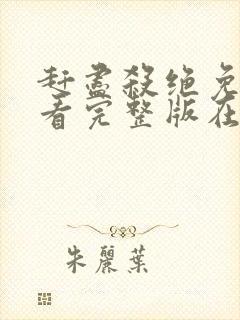 赶盡殺绝免
看完整版在
朱麗葉